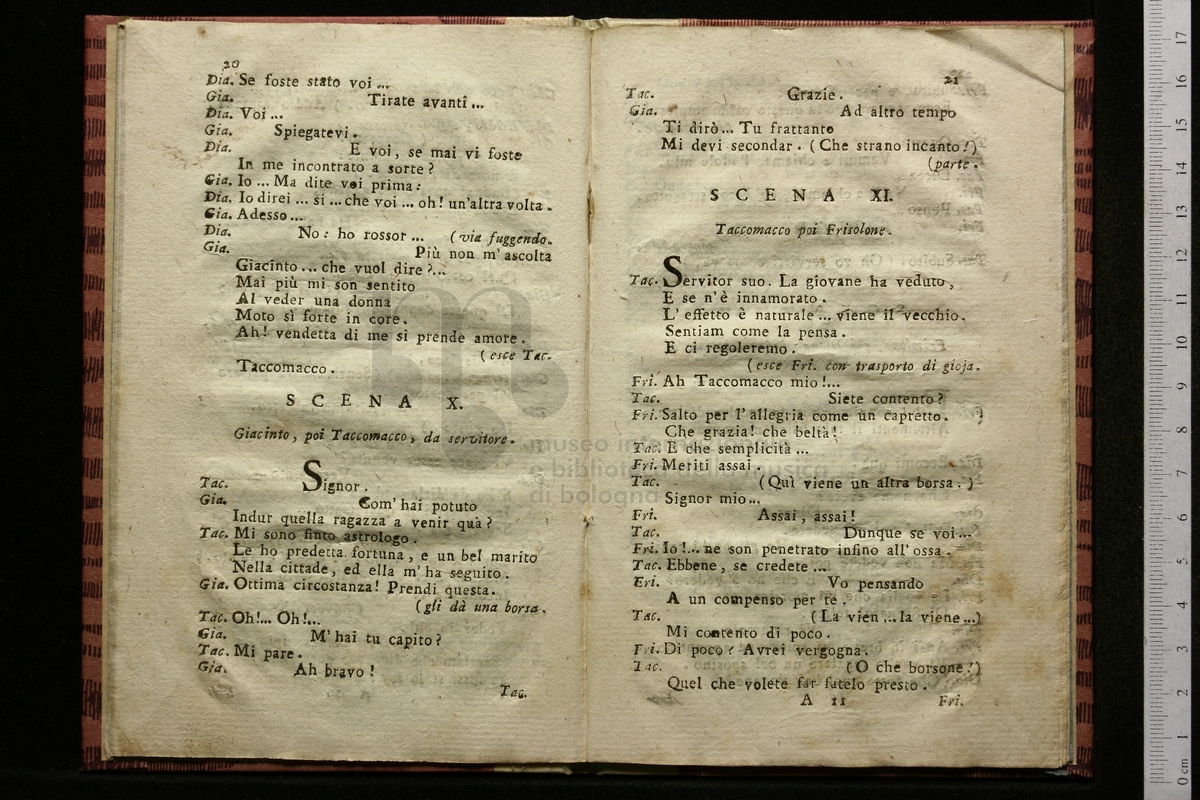 20
Dia. Se foste stato voi ...
Gia. Tirate avanti ...
Dia. Voi ...
Gia. Spiegatevi.
Dia. E voi, se mai vi foste
In me incontrato a sorte?
Gia. Io ... Ma dite voi prima:
Dia. Io direi ... si ... che voi ... oh! un'altra volta.
Gia. Adesso ...
Dia. No: ho rossor ... (via fuggendo.
Gia. Più non m'ascolta
Giacinto ... che vuol dire?...
Mai più mi son sentito
Al veder una donna
Moto sì forte in core.
Ah! vendetta di me si prende amore.
(esce Tac.
Taccomacco.
SCENA X.
Giacinto, poi Taccomacco, da servitore.
Tac. Signor.
Gia. Com'hai potuto
Indur quella ragazza a venir quà?
Tac. Mi sono finto astrologo.
Le ho predetta fortuna, e un bel marito
Nella cittade, ed ella m'ha seguito.
Gia. Ottima circostanza! Prendi questa.
(gli dà una borsa.
Tac. Oh!... Oh!...
Gia. M'hai tu capito?
Tac. Mi pare.
Gia. Ah bravo!
Tac.
21
Tac. Grazie.
Gia. Ad altro tempo
Ti dirò... Tu frattanto
Mi devi secondar. (Che strano incanto!)
(parte.
SCENA XI.
Taccomacco poi Frisolone.
Tac. Servitor suo. La giovane ha veduto,
E se n'è innamorato.
L'effetto è naturale ... viene il vecchio.
Sentiam come la pensa.
E ci regoleremo.
(esce Fri. con trasporto di gioja.
Fri. Ah Taccomacco mio!...
Tac. Siete contento?
Fri. Salto per l'allegria come un capretto.
Che grazia! che beltà!
Tac. E che semplicità ...
Fri. Meriti assai.
Tac. (Quì viene un altra borsa.)
Signor mio...
Fri. Assai, assai!
Tac. Dunque se voi...
Fri. Io!... ne son penetrato infino all'ossa.
Tac. Ebbene, se credete ...
Fri. Vo pensando
A un compenso per te.
Tac. (La vien ... la viene ...)
Mi contento di poco.
Fri. Di poco? Avrei vergogna.
Tac. (O che borsone!)
Quel che volete far fatelo presto.
A 11 Fri.
museo inter
e bibliote della musica
di bologna